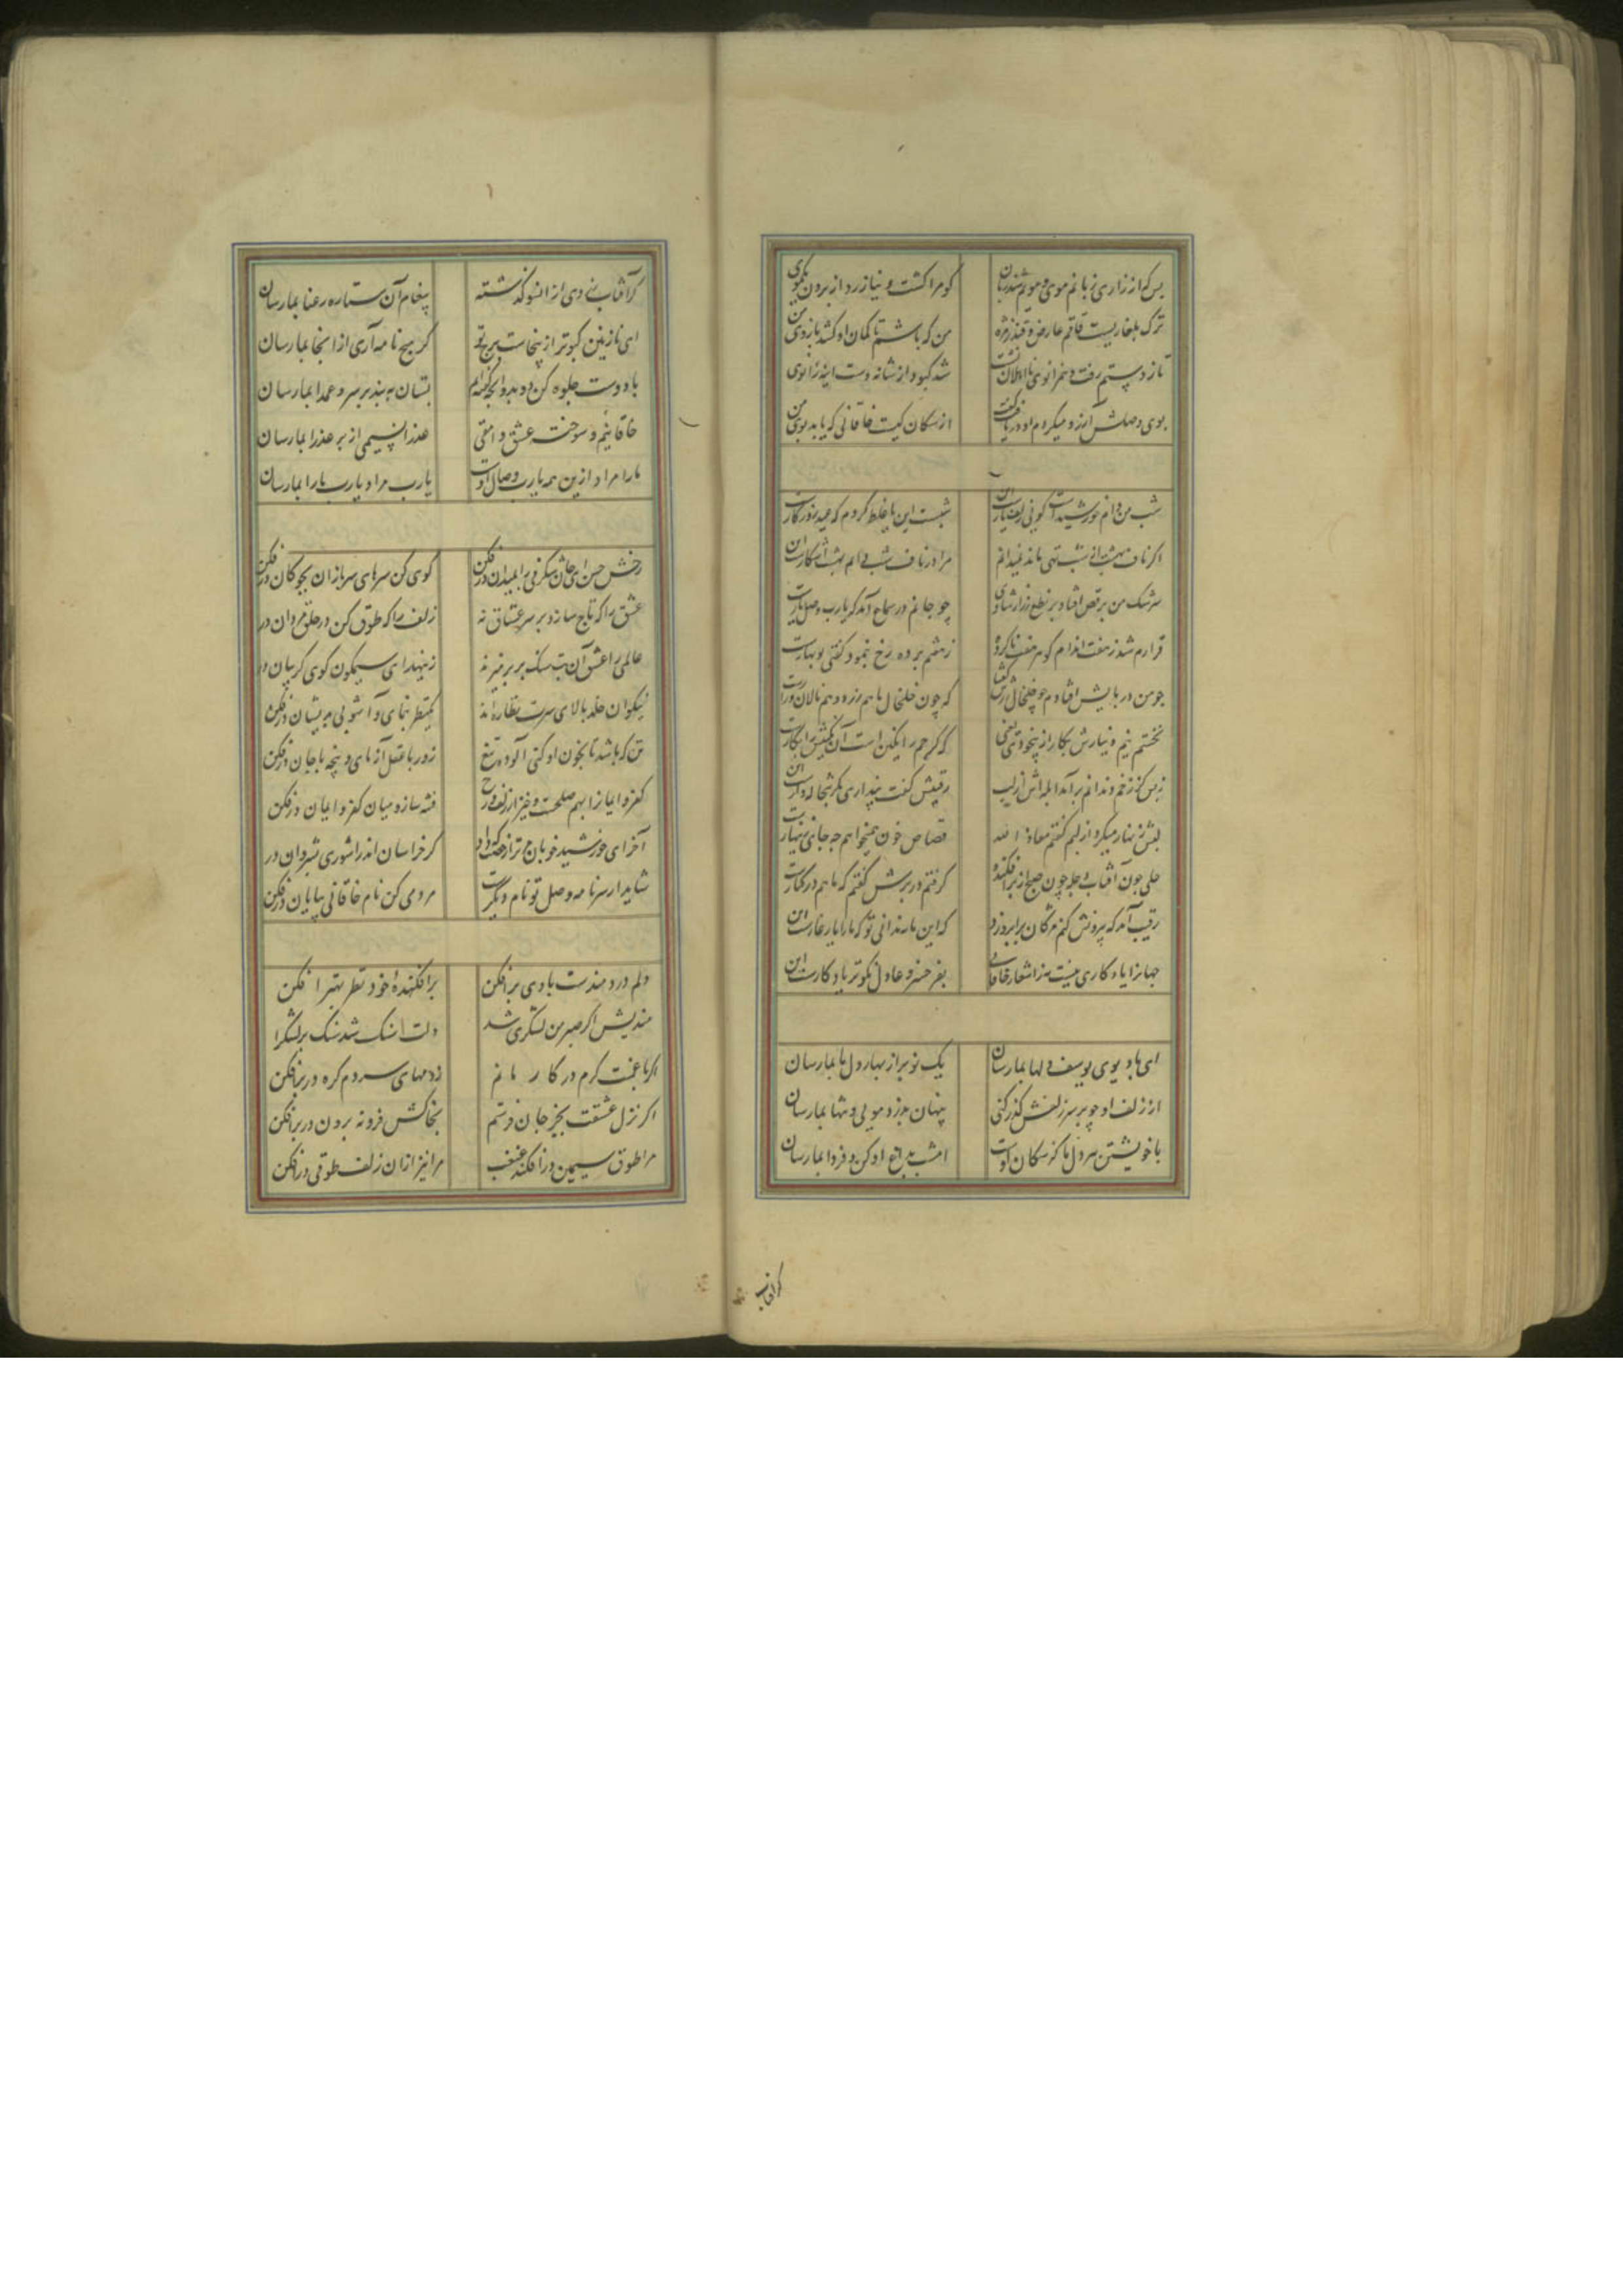 بس که از زاری زبانم موی و مویم شد زبان کو مرا کشت و نیازرد از برون یکموی
ترک بلغاریست قاقم عارض و قندز مژه من که باشم تا کمان او کشد بازوی من
تا ز دستم رفت و همزانوی نااهلان نشست شد کبود از شانه دست اینه زانوی
بوی وصلش آرزو میکردم او دریافت گفت از سکان کیست خاقانی که یابد بوی من
شب من دام خورشیدست گویی زلف یارست این شبست این یا غلط کردم که عید روزگارست
اکر ناف بهشت از شب تهی ماند نمیدانم مرا در ناف شب دانم بهشت آشکارست این
سرشک من برقص افتاد بر نطع زر از شادی چو جانم در سماع آمد که یارب وصل یارست
قرارم شد ز هفت اندام کو هر هفت ناکرده ز هشتم پرده رخ بنمود کفتی نوبهارست
چو من در پایش افتادم چو خلخال زرش کفتا که چون خلخال ما هم زرد و هم نالان و زارست
نخستم نیم
رقیبش کفت پنداری مکر تبخاله دارست این
لبش زنهار میکرد از لبم کفتم معاذ الله قصاص خون همیخواهم چه جای زینهارست
حلی چون آفتاب و حله چون صبح از بر افکنده کرفتم در برش کفتم که ماهم در کنارست
رقیب آمد که بیرونش کنم مژکان برابرو زد که این ما ندانی تو که مارا یار غارست این
جهانرا یادکاری نیست به ز اشعار خاقانی بفر خسرو عادل نکوتر یادکارست این
ای باد بوی یوسف دلها بما رسان یک نوبر از بهار دل ما بما رسان
از زلف او چو بر سر زلفش کذر کنی پنهان بدزد مویی و تنها بما رسان
با خویشتن ببر دل ما کز سکان اوست امشب بداغ او کن و فردا بما رسان
کر آفتاب
کر آفتاب زردی از انسو کذشته پیغام آن ستاره رعنا بما رسان
ای نازنین کبوتر ازینجاست برج تو کر هیچ نامه آری از انجا بما رسان
با دوست جلوه کن بستان به بند بر سر و عمدا بما رسان
خاقانیم و سوخته عشق وامقی عذرا نسیمی از بر عذرا بما رسان
ما را مراد ازین همه یارب وصال اوست یارب مراد یارب ما را بما رسان
رخش حسن ای جان شکرفی را بمیدان در فکن کوی کن سرهای سربازان بچوکان در فکن
عشق را که تاج سازد بر سر عشاق نه زلف را که طوق کن در حلق مردان در
عالمی را عشق آن بت سنک بر بر میزند زینهار ای سیمکون کوی کریبان در
نیکوان خلد بالای سرت نظاره اند یکنظر بنمای و آشوبی بدیشان در فکن
تن که باشد تا بخون او کنی آلوده تیغ زور با عقل آزمای و پنجه با جان در فکن
کفر و ایمانرا بهم صلحست خیز از زلف و رخ فتنه ساز و میان کفر و ایمان در فکن
آخر ای خورشید خوبان مر ترا رخصت که داد کز خراسان اندر آ شوری بشروان در
شاید ار سرنامه وصل تو نام دیکرست مردمی کن نام خاقانی بپایان در فکن
دلم دردمندست باری بر افکن بر افکندهٔ خود نظر بهتر افکن
میندیش اکر صبر من لشکری شد دلت سنک شد سنک بر لشکر ا
اکر با غمت کرم در کار مانم ز دمهای سردم کره در بر افکن
اکر نزل عشقت بجز جان فرستم بخاکش فرو نه برون در بر افکن
مرا طوق سیمین در افکند غبغب مرا نیز ازان زلف طوقی در افکن